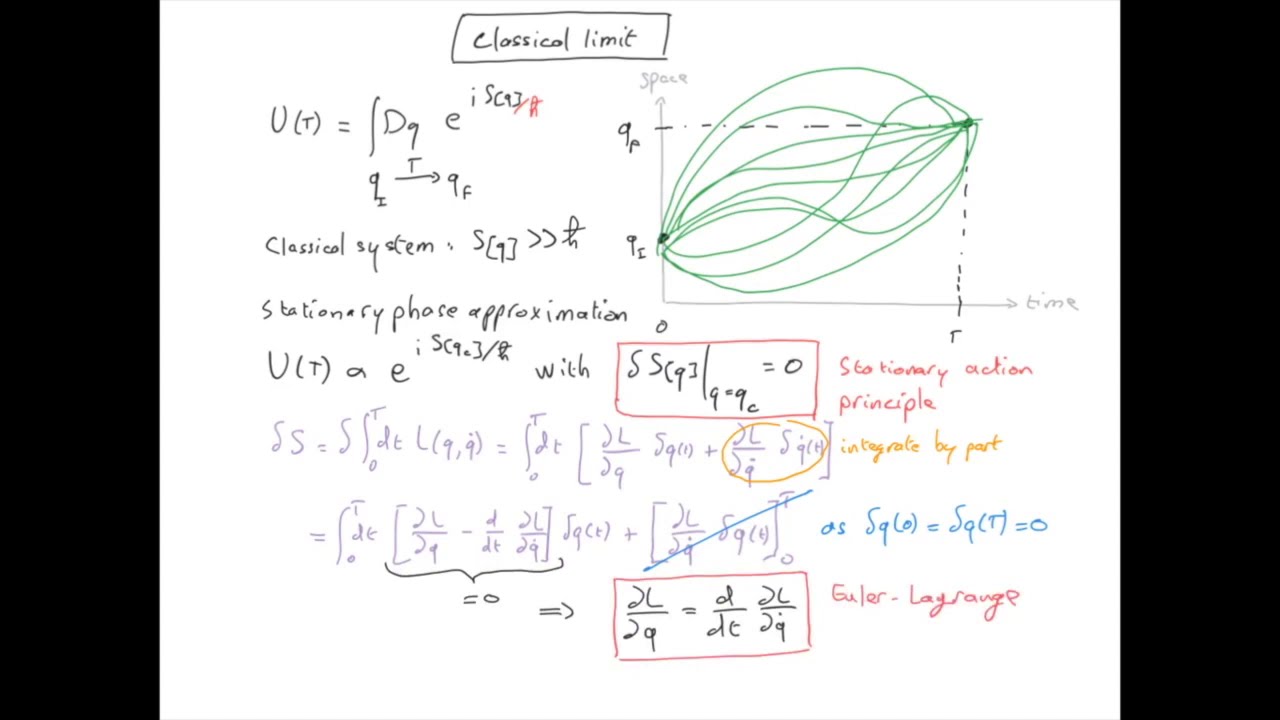 Classical limit
U(T) = ∫Dq e^{i S[q]/ħ}
q_I →^T q_F
Classical system : S[q] >> ħ
Stationary phase approximation
U(T) α e^{i S[q_c]/ħ} with δS[q]|_{q=q_c} = 0
Stationary action
principle
δS = δ∫_0^T dt L(q,q̇) = ∫_0^T dt [∂L/∂q δq(t) + ∂L/∂q̇ δq̇(t)] integrate by part
= ∫_0^T dt [∂L/∂q - d/dt ∂L/∂q̇] δq(t) + [∂L/∂q̇ δq(t)]_0^T as δq(0) = δq(T) = 0
= 0 ⟹ ∂L/∂q = d/dt ∂L/∂q̇ Euler-Lagrange
space
q_F
q_I
time
0
T